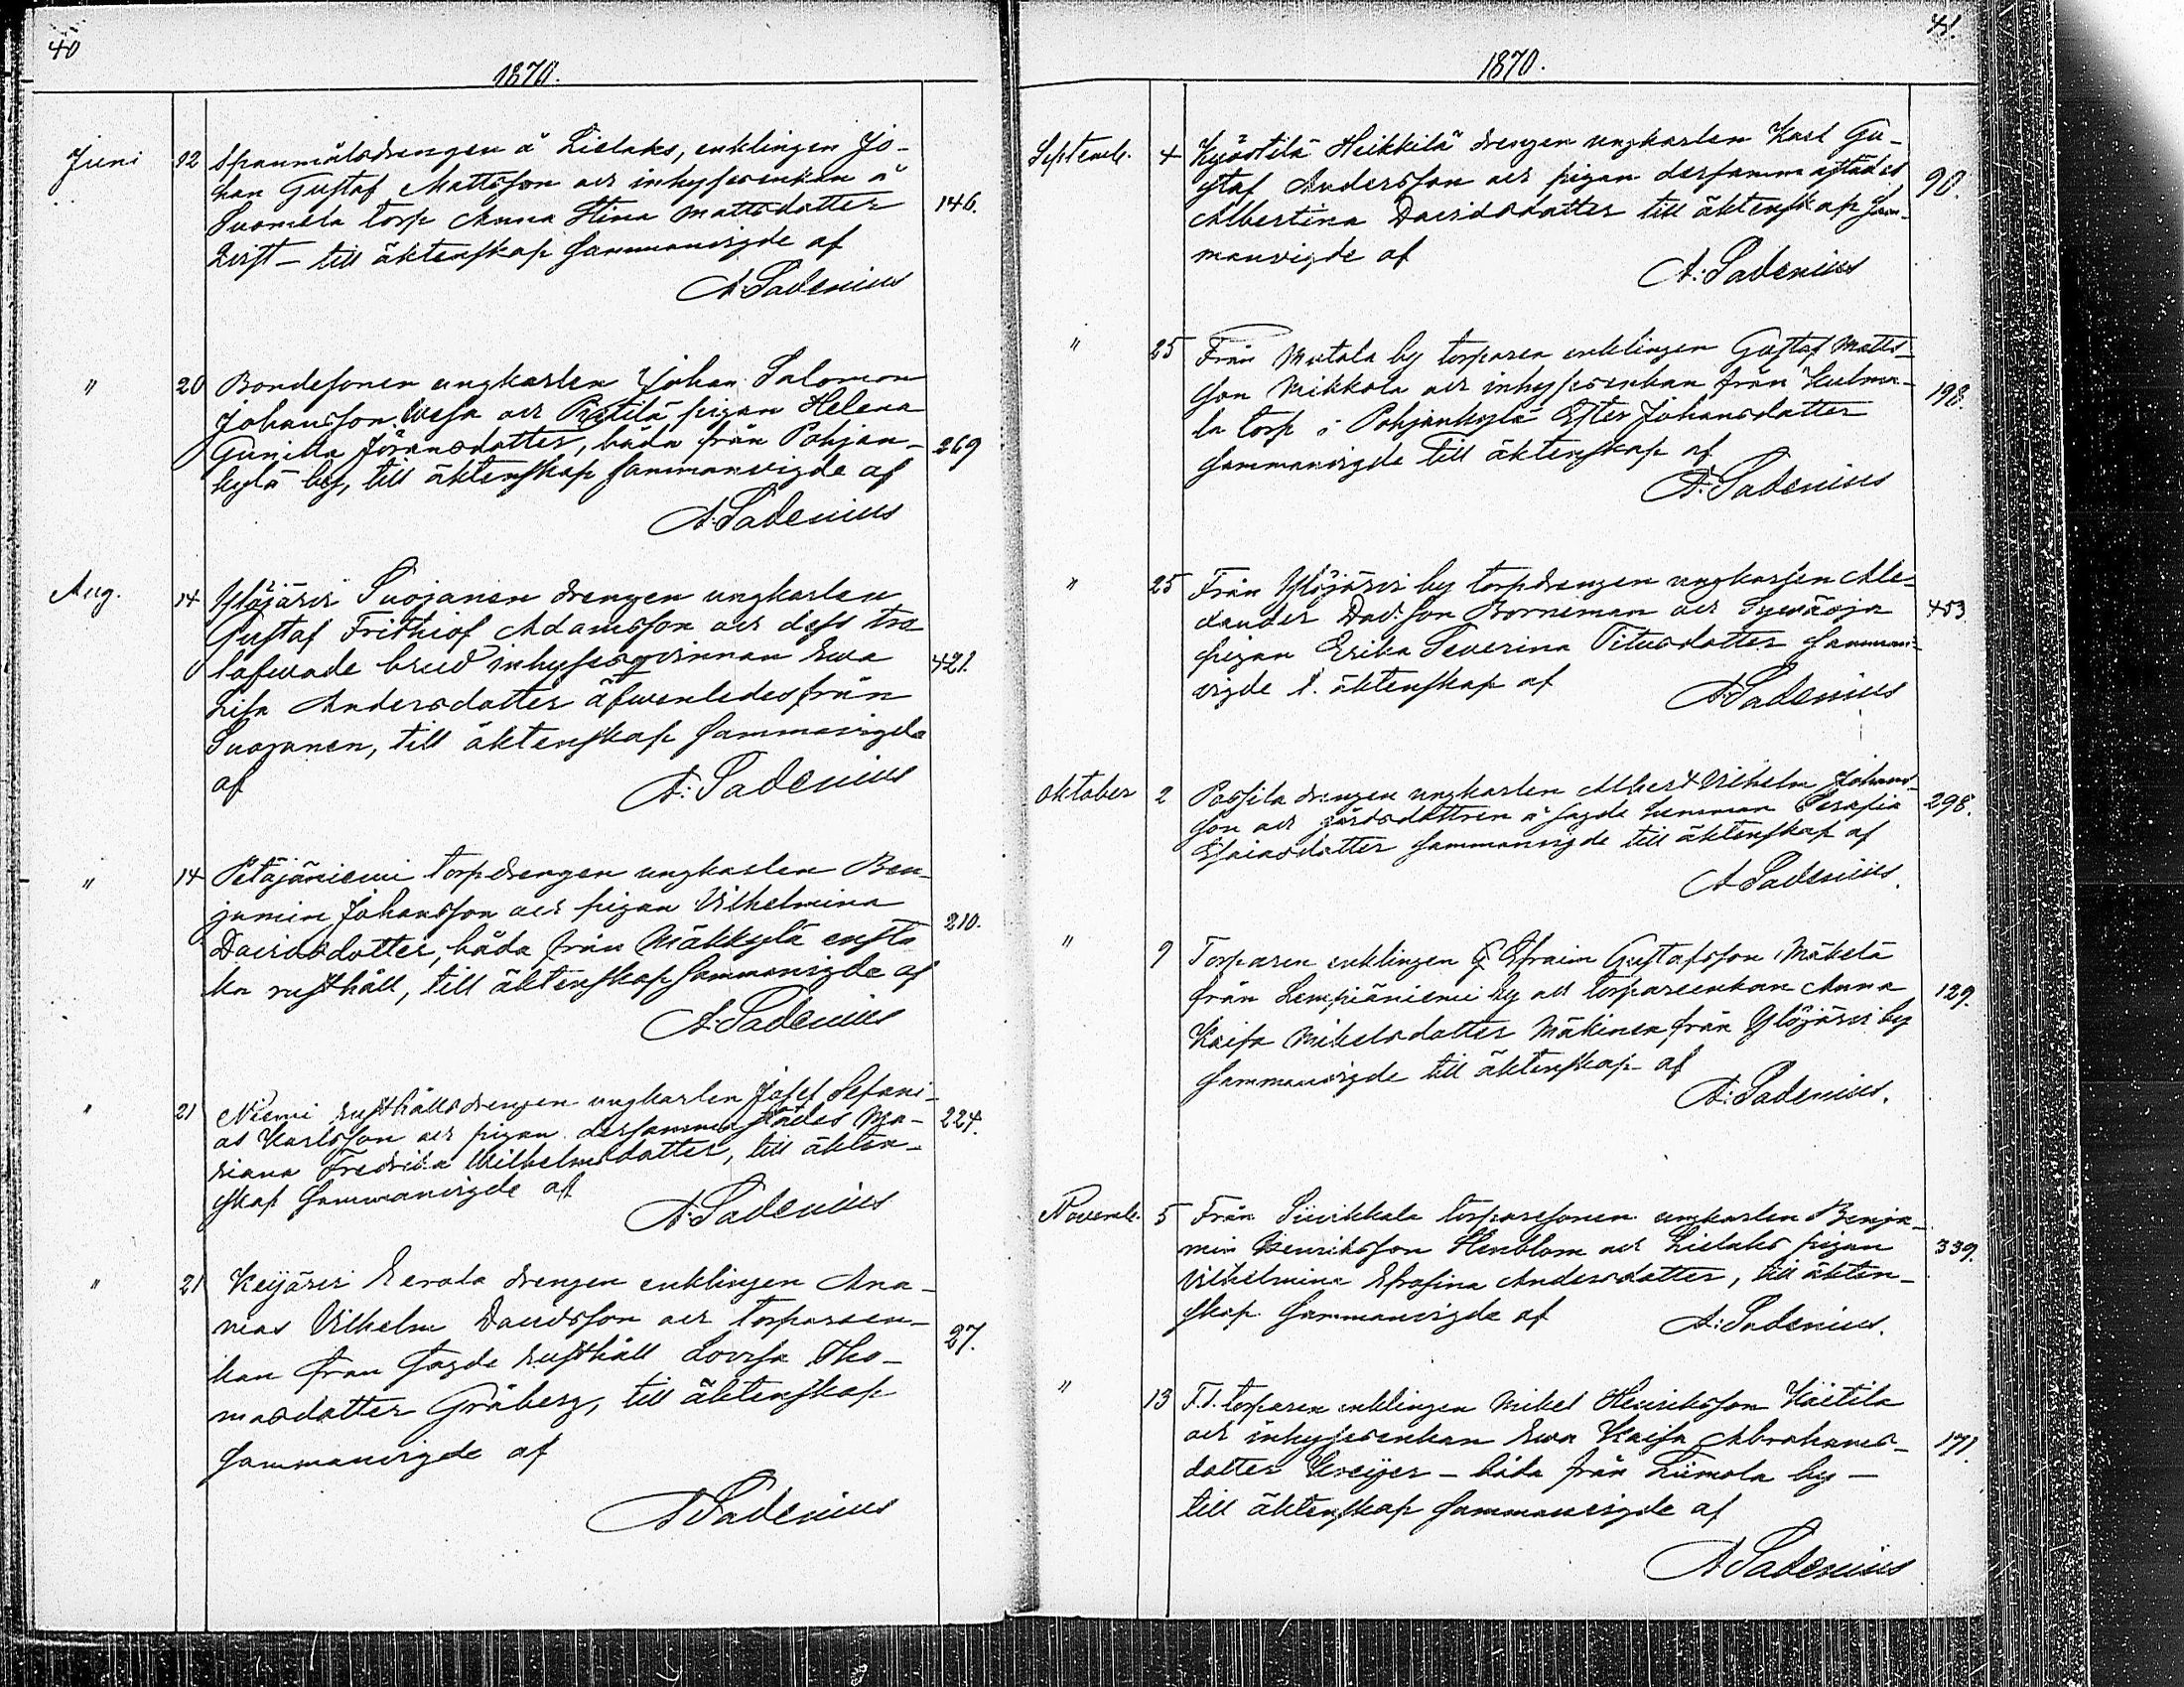 40
1870.
Juni 12 Spanmålsdrengen å Lielaks, enklingen Jo-
han Gustaf Mattsson och inhysesenkan å
Suomela torp Anna Stina Mattsdotter 146.
Qvist — till äktenskap sammanvigde af
A. Sadenius
" 20 Bondesonen ungkarlen Johan Salomon
Johansson Wesa och Pietilä pigan Helena
Gunilla Jöransdotter, båda från Pohjan- 269
kylä by, till äktenskap sammanvigde af
A. Sadenius
Aug. 14 Ylöjärvi Suojanen drengen ungkarlen
Gustaf Frithiof Adamsson och dess tro
lofwade brud inhysesqvinnan Ewa 421.
Lisa Andersdotter äfwenledes från
Suojanen, till äktenskap sammanvigde
af A: Sadenius
" 14 Petäjäniemi torpdrengen ungkarlen Ben-
jamin Johansson och pigan Vilhelmina 210.
Davidsdotter, båda från Mäkkylä ensta
ka rusthåll, till äktenskap sammanvigde af
A: Sadenius
" 21 Niemi rusthållsdrengen ungkarlen Josef Sefani-
as Karlsson och pigan dersammastädes Ma- 224.
riana Fredrika Wilhelmsdotter, till äkten-
skap sammanvigde af A: Sadenius
" 21 Keijärvi Eerola drengen enklingen Ana-
nias Vilhelm Davidsson och torpareen-
kan från sagde rusthåll Lovisa Tho- 27.
masdotter Gråberg, till äktenskap
sammanvigde af
A Sadenius
41.
1870.
Septemb. 4 Kyöstilä Heikkilä drengen ungkarlen Karl Gu-
staf Andersson och pigan dersammastädes 90.
Albertina Davidsdotter till äktenskap sam-
manvigde af A: Sadenius
" 25 Från Mutala by torparen enklingen Gustaf Matts-
son Mikkola och inhysesenkan från Kulma- 198.
la torp i Pohjankylä Ester Johansdotter
sammanvigde till äktenskap af
A: Sadenius
" 25 Från Ylöjärvi by torpdrengen ungkarlen Ale-
xander Dav:son Borneman och 453
pigan Erika Severina Titusdotter samman-
vigde t. äktenskap af A: Sadenius
Oktober 2 Possila drengen ungkarlen Albert Vilhelm Johans-
son och gårdsdottren å sagde hemman Serafia 298.
Esaiasdotter sammanvigde till äktenskap af
A Sadenius.
" 9 Torparen enklingen Efraim Gustafsson Mäkelä
från Lempiäniemi by och torpareenkan Anna 129.
Kaisa Mikelsdotter Mäkinen från Ylöjärvi by
sammanvigde till äktenskap af
A: Sadenius.
Novemb. 5 Från Siivikkala torparesonen ungkarlen Benja-
min Henriksson Henblom och Lielaks pigan 339.
Vilhelmina Efrosina Andersdotter, till äkten-
skap sammanvigde af A: Sadenius.
" 13 F.d. torparen enklingen Mikel Henriksson Köötilä
och inhysesenkan Ewa Kaisa Abrahams- 171.
dotter Kreijer — båda från Liimola by —
till äktenskap sammanvigde af
A Sadenius